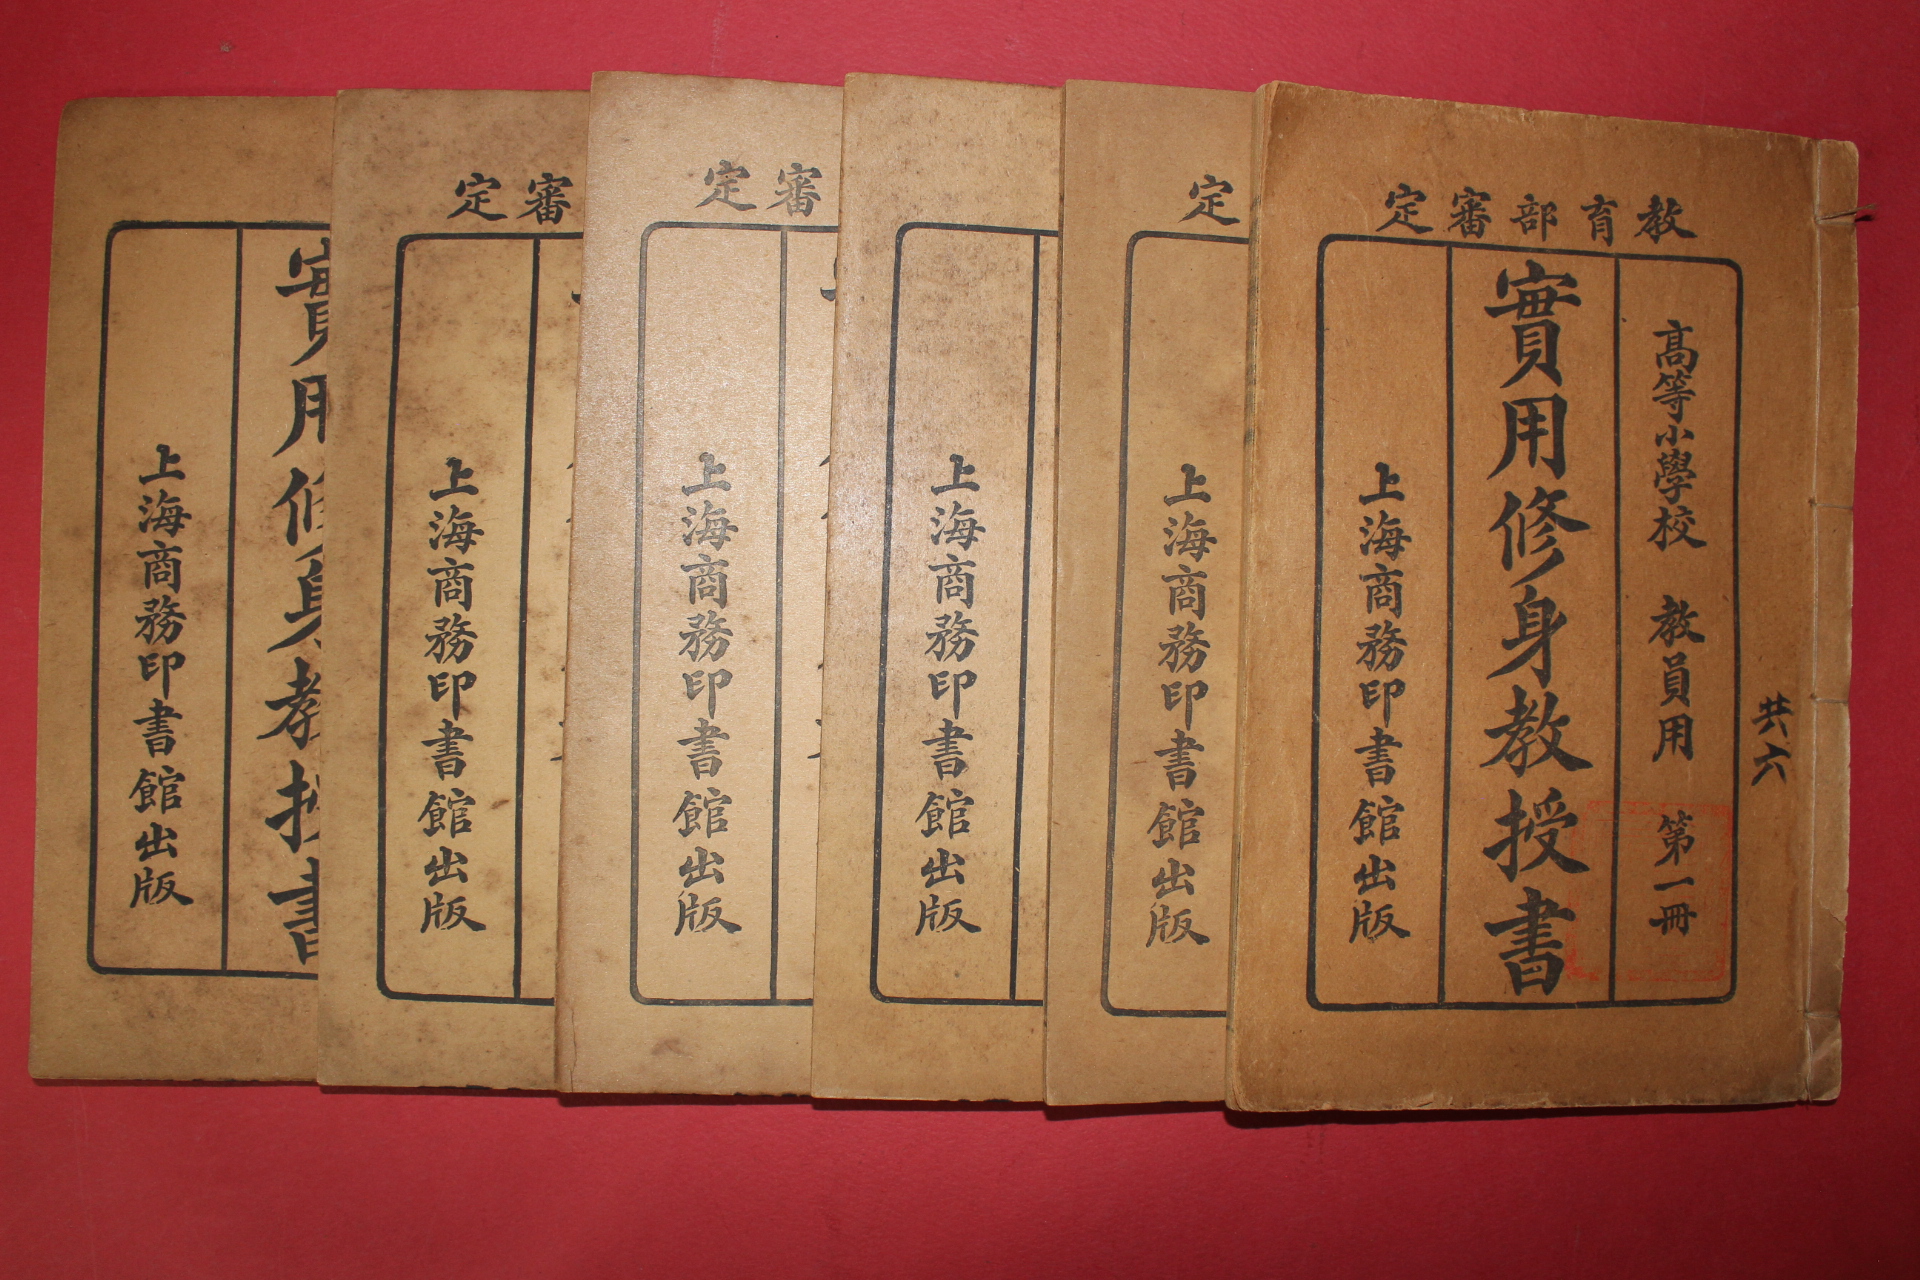 教育部審定
高等小學校 教員用 第一冊
實用修身教授書
上海商務印書館出版
共六
定
上海商務印書館出版
上海商務印書館出版
審定
上海商務印書館出版
審定
上海商務印書館出版
實用修身教授書
上海商務印書館出版